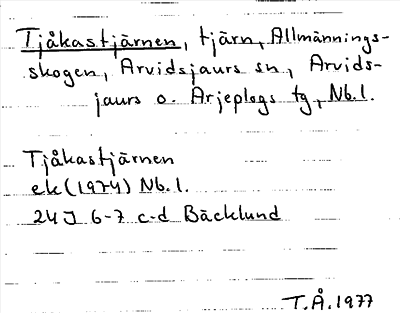 Tjåkastjärnen, tjärn, Allmännings-
skogen, Arvidsjaurs sn, Arvids-
jaurs o. Arjeplogs tg, Nb. l.
Tjåkastjärnen
ek (1974) Nb. l.
24J 6-7 c-d Bäcklund
T.Å. 1977